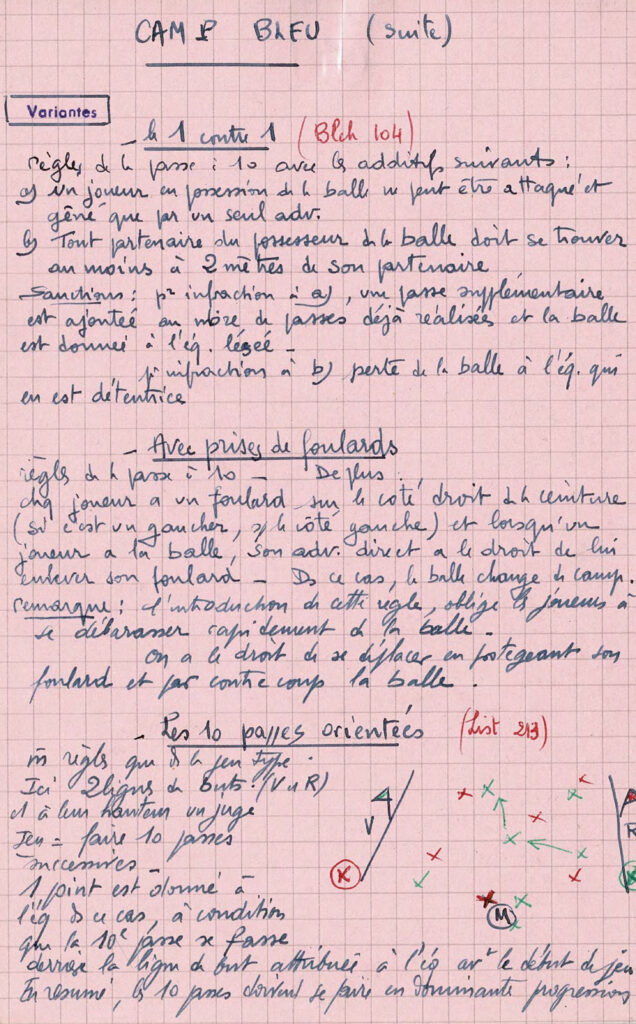 CAMP BLEU (suite)
Variantes
- le 1 contre 1 (Blch 104)
règles de la passe à 10 avec les additifs suivants :
a) un joueur en possession de la balle ne peut être attaqué et
gêné que par un seul adv.
b) Tout partenaire du possesseur de la balle doit se trouver
au moins à 2 mètres de son partenaire
Sanctions : pr infraction à a), une passe supplémentaire
est ajoutée au nbre de passes déjà réalisées et la balle
est donnée à l'éq. lésée -
pr infraction à b) perte de la balle à l'éq. qui
en est détentrice
- Avec prises de foulards
règles de la passe à 10 - De plus :
chq joueur a un foulard sur le côté droit de la ceinture
(si c'est un gaucher, s/ le côté gauche) et lorsqu'un
joueur a la balle, son adv. direct a le droit de lui
enlever son foulard - Ds ce cas, la balle change de camp.
remarque : l'introduction de cette règle, oblige les joueurs à
se débarasser rapidement de la balle -
On a le droit de se déplacer en protégeant son
foulard et par contre coup la balle.
- Les 10 passes orientées (List 213)
m̄ règles que ds le jeu type.
Ici 2 lignes de buts. (V et R)
et à leur hauteur un juge
Jeu = faire 10 passes
successives -
1 point est donné à
l'éq ds ce cas, à condition
que la 10e passe se fasse
derrière la ligne de but attribuée à l'éq avt le début du jeu
En résumé, les 10 passes doivent se faire en dominante progression
V
R
M